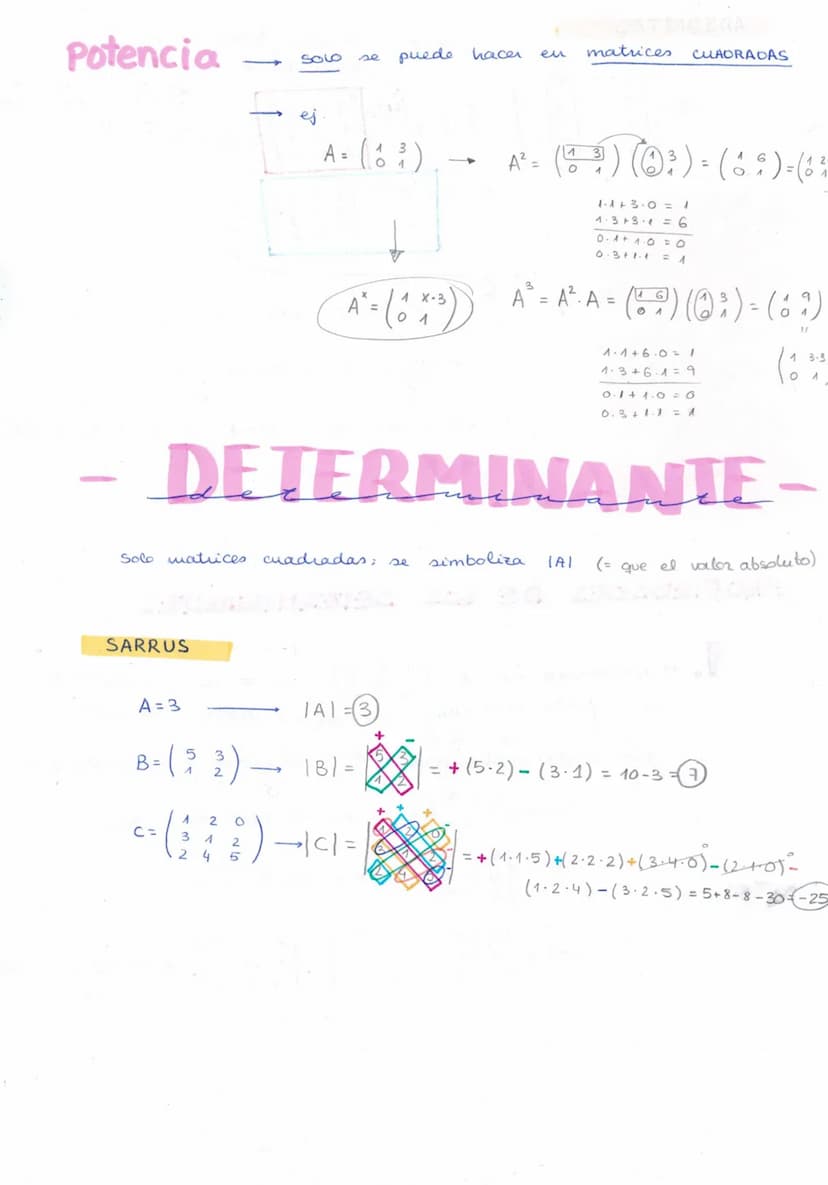 Potencia → solo se puede hacer en matrices CUADRADAS
→ ej.
A = (1 3 / 0 1) → A² = (1 3 / 0 1) (1 3 / 0 1) = (1 6 / 0 1) = (1 2 / 0 1
1·1+3·0 = 1
1·3+3·1 = 6
0·1+1·0 = 0
0·3+1·1 = 1
Aˣ = (1 x·3 / 0 1)
A³ = A²·A = (1 6 / 0 1) (1 3 / 0 1) = (1 9 / 0 1)
"
(1 3·3 / 0 1
1·1+6·0 = 1
1·3+6·1 = 9
0·1+1·0 = 0
0·3+1·1 = 1
- DETERMINANTE -
determinante
Solo matrices cuadradas; se simboliza |A| (= que el valor absoluto)
SARRUS
A = 3 → |A| = 3
+ -
B = (5 3 / 1 2) → |B| = |5 3 / 1 2| = +(5·2) - (3·1) = 10-3 = 7
+ + + -
C = (1 2 0 / 3 1 2 / 2 4 5) → |C| = |1 2 0 / 3 1 2 / 2 4 5| = +(1·1·5)+(2·2·2)+(3·4·0)-(2·1·0)-
(1·2·4)-(3·2·5) = 5+8-8-30 = -25